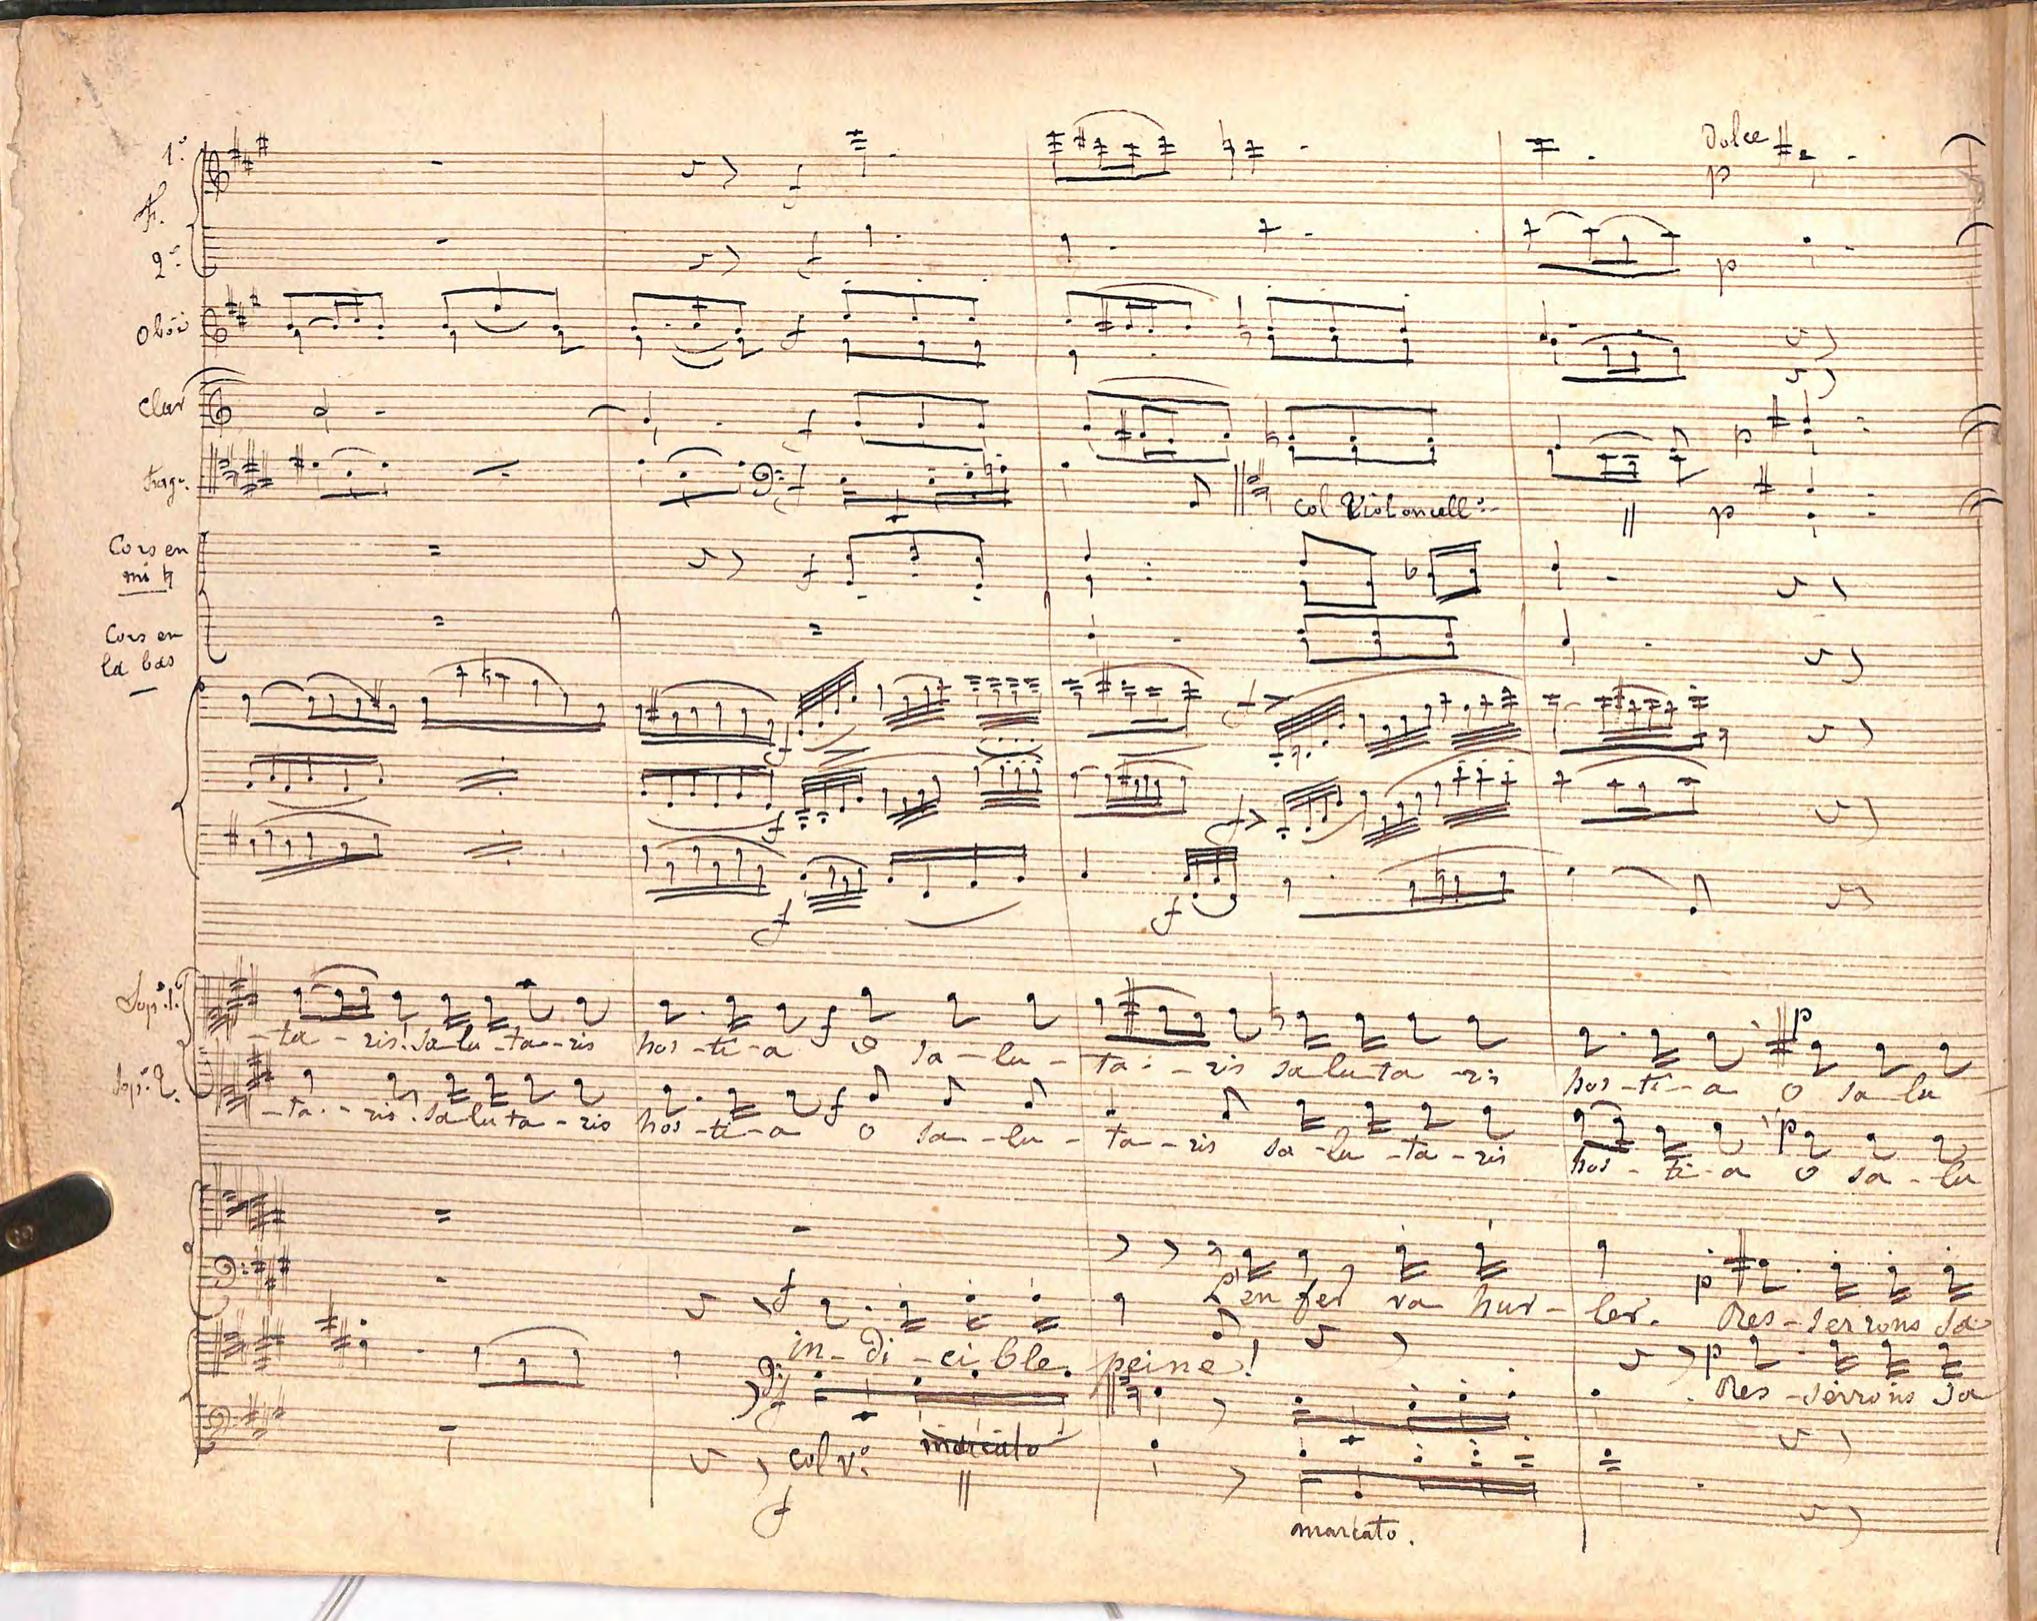 1º
dolce
p
Fl.
f
2º
f
p
Oboi
f
Clar
f
p
Fag.
f
col Violoncellº
p
Cors en
mi ♮
f
Cors en
la bas
f
f
f
f
f
f
Sop. 1º
f
p
- ta - ris. sa lu - ta - ris hos - ti - a o sa - lu - ta - ris sa lu ta - ris hos - ti - a o sa lu
Sop. 2º
f
p
- ta - ris. sa lu ta - ris hos - ti - a o sa - lu - ta - ris sa - lu - ta - ris hos - ti - a o sa - lu
f
p
L'en fer va hur - ler. Res - serrons sa
in - di - ci ble peine!
p
Res - serrons sa
f
marcato
col vº
f
marcato.